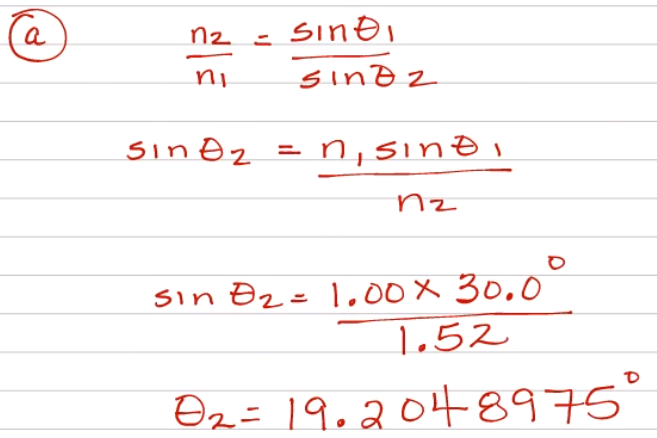 (a) n2/n1 = sinθ1/sinθ2
sinθ2 = n1sinθ1/n2
sin θ2 = 1.00 × 30.0°/1.52
θ2 = 19.2048975°